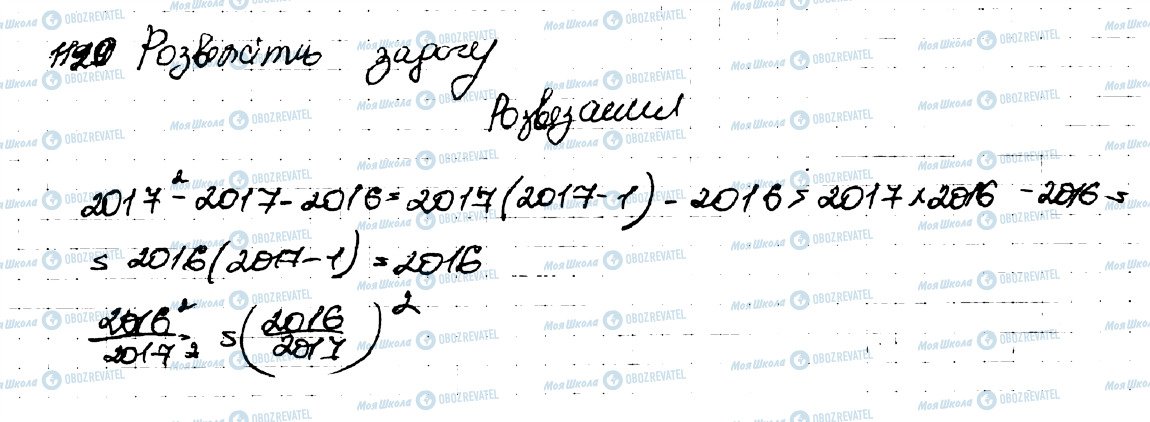 1120 Розв'яжіть задачу
Розв'язання
2017² - 2017 - 2016 = 2017(2017-1) - 2016 = 2017×2016 - 2016 =
= 2016(2017-1) = 2016
2016² / 2017² = (2016 / 2017)²